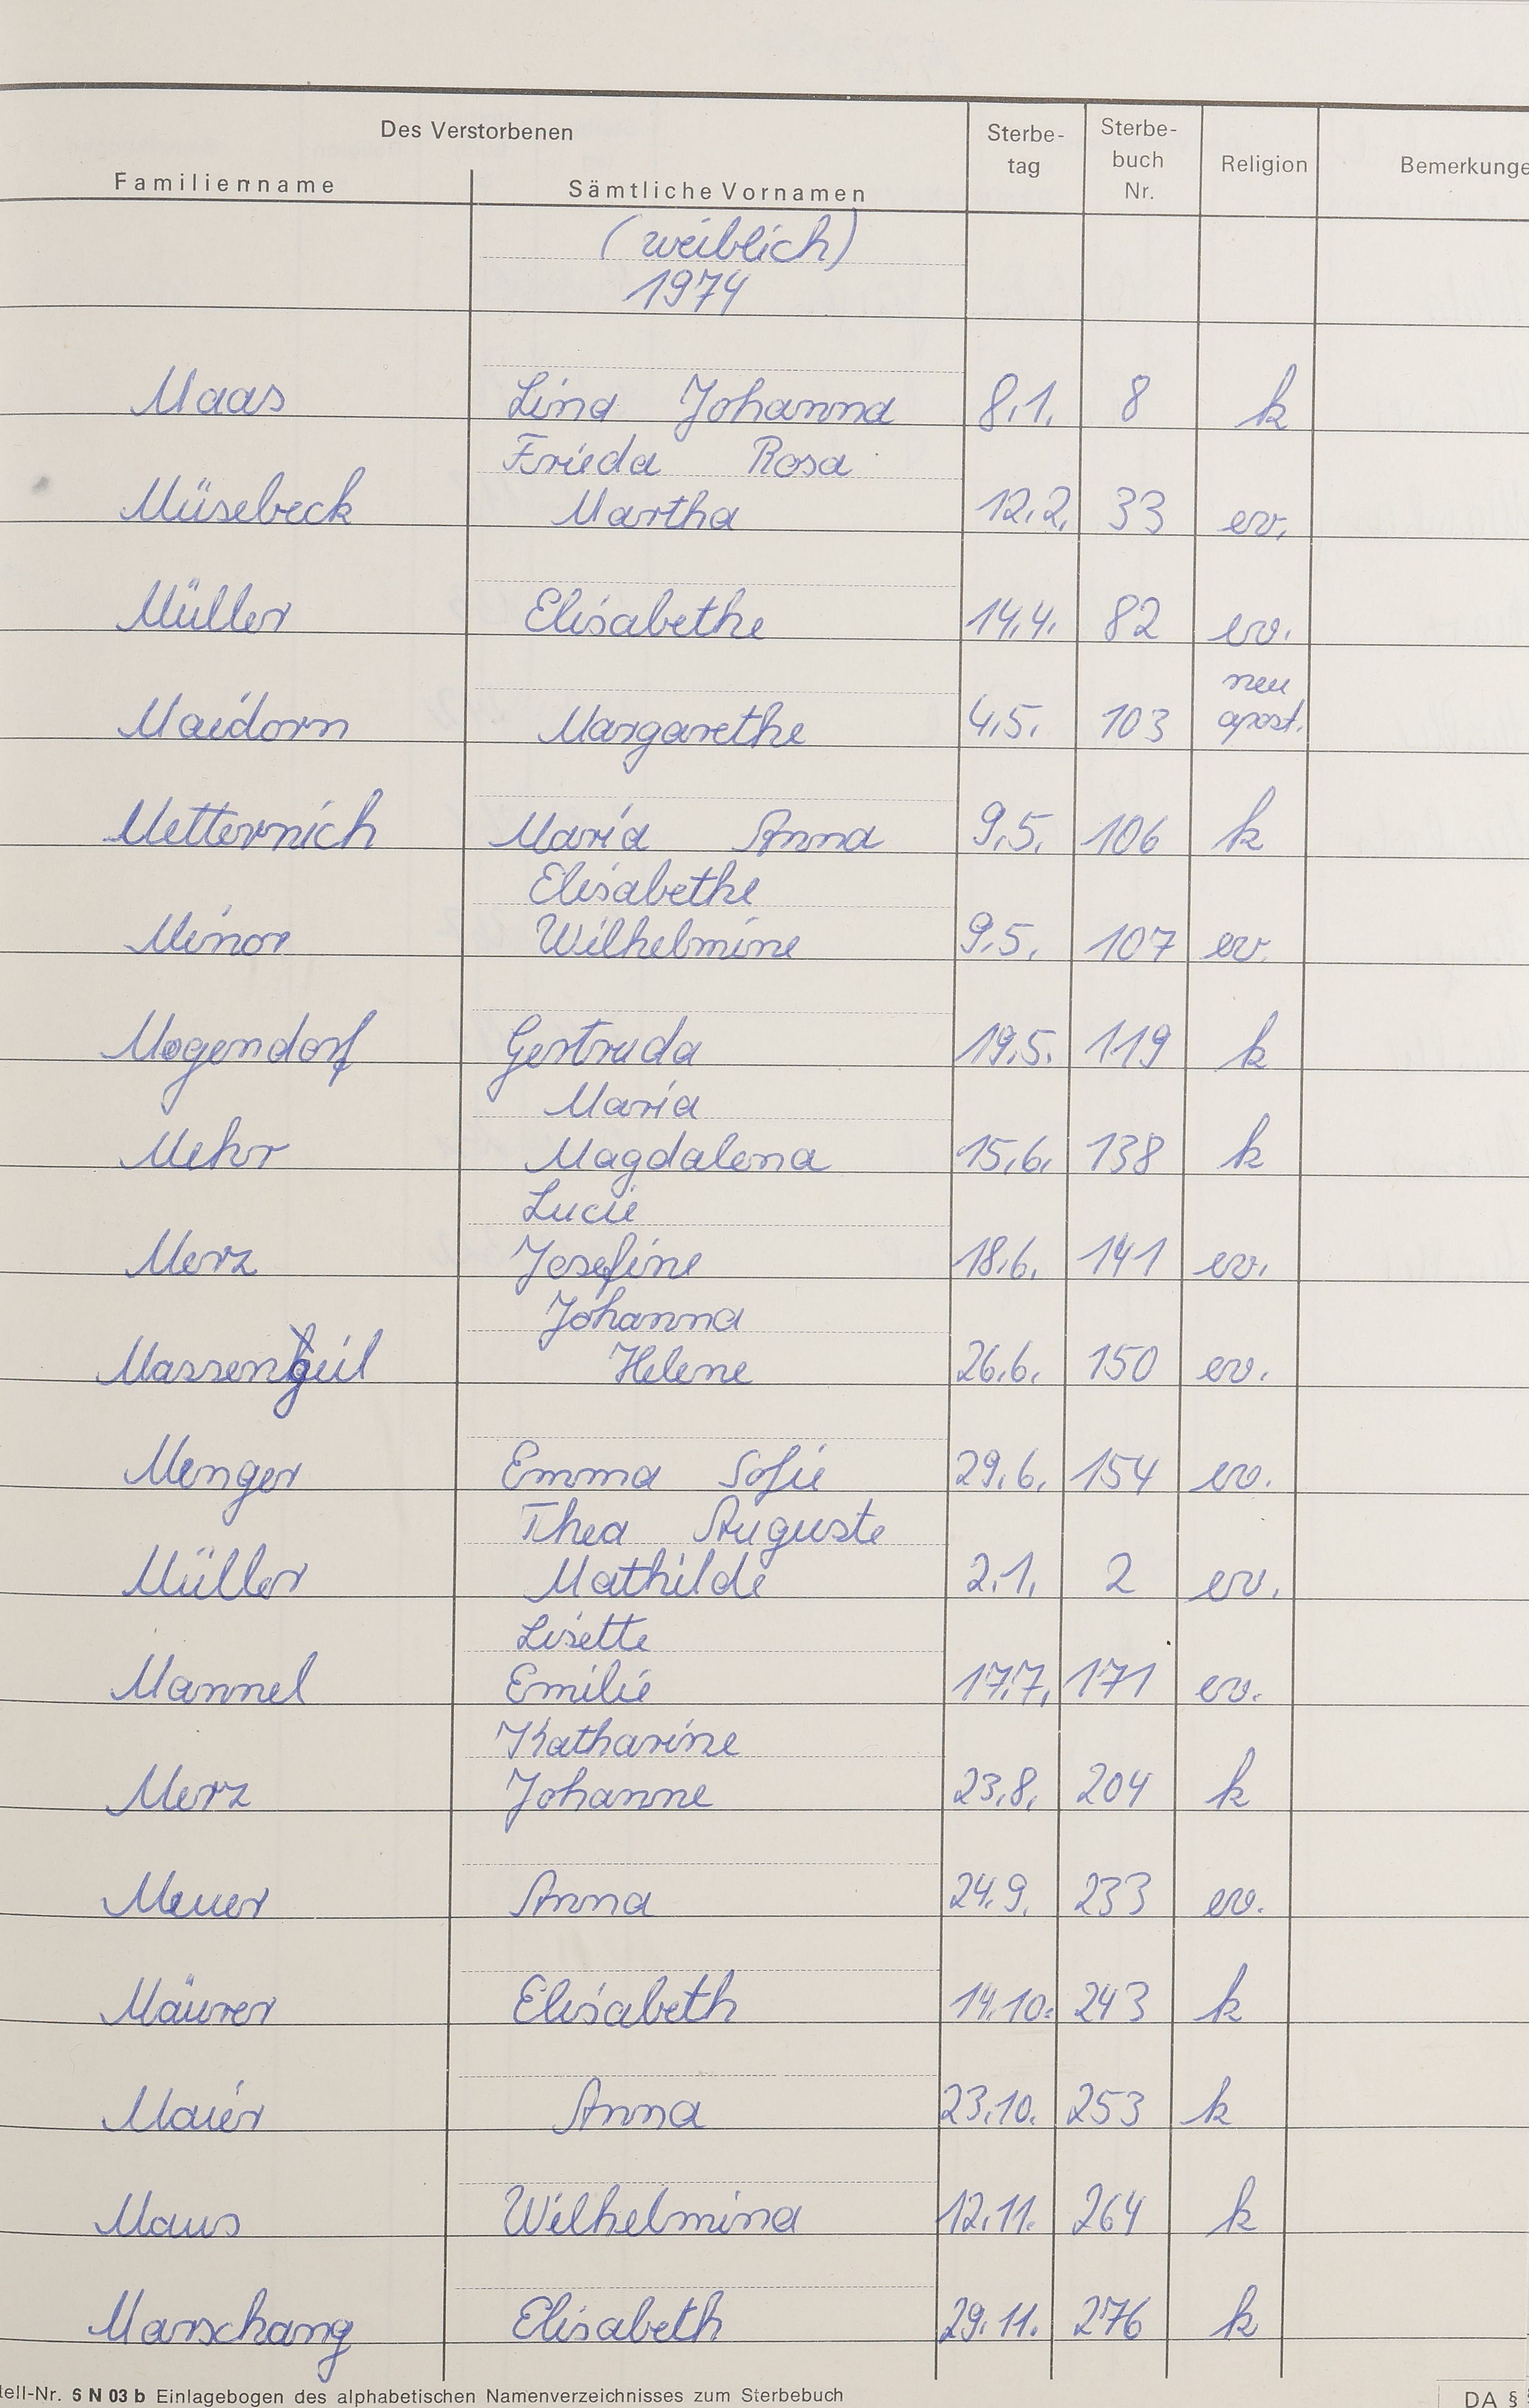 Des Verstorbenen
Familienname Sämtliche Vornamen Sterbe-tag Sterbe-buch Nr. Religion Bemerkunge
(weiblich)
1974
Maas Lina Johanna 8.1. 8 k
Frieda Rosa
Müsebeck Martha 12.2. 33 ev.
Müller Elisabethe 14.4. 82 ev.
neu
Maidorn Margarethe 4.5. 103 apost.
Metternich Maria Anna 9.5. 106 k
Elisabethe
Minor Wilhelmine 9.5. 107 ev.
Mogendorf Gertruda 19.5. 119 k
Maria
Mehr Magdalena 15.6. 138 k
Lucie
Merz Josefine 18.6. 141 ev.
Johanna
Massengeil Helene 26.6. 150 ev.
Menger Emma Sofie 29.6. 154 ev.
Thea Auguste
Müller Mathilde 2.1. 2 ev.
Lisette
Mannel Emilie 17.7. 171 ev.
Katharine
Merz Johanne 23.8. 204 k
Meuer Anna 24.9. 233 ev.
Mäurer Elisabeth 14.10. 243 k
Maier Anna 23.10. 253 k
Maus Wilhelmina 12.11. 264 k
Marschang Elisabeth 29.11. 276 k
tell-Nr. 6 N 03 b Einlagebogen des alphabetischen Namenverzeichnisses zum Sterbebuch DA §